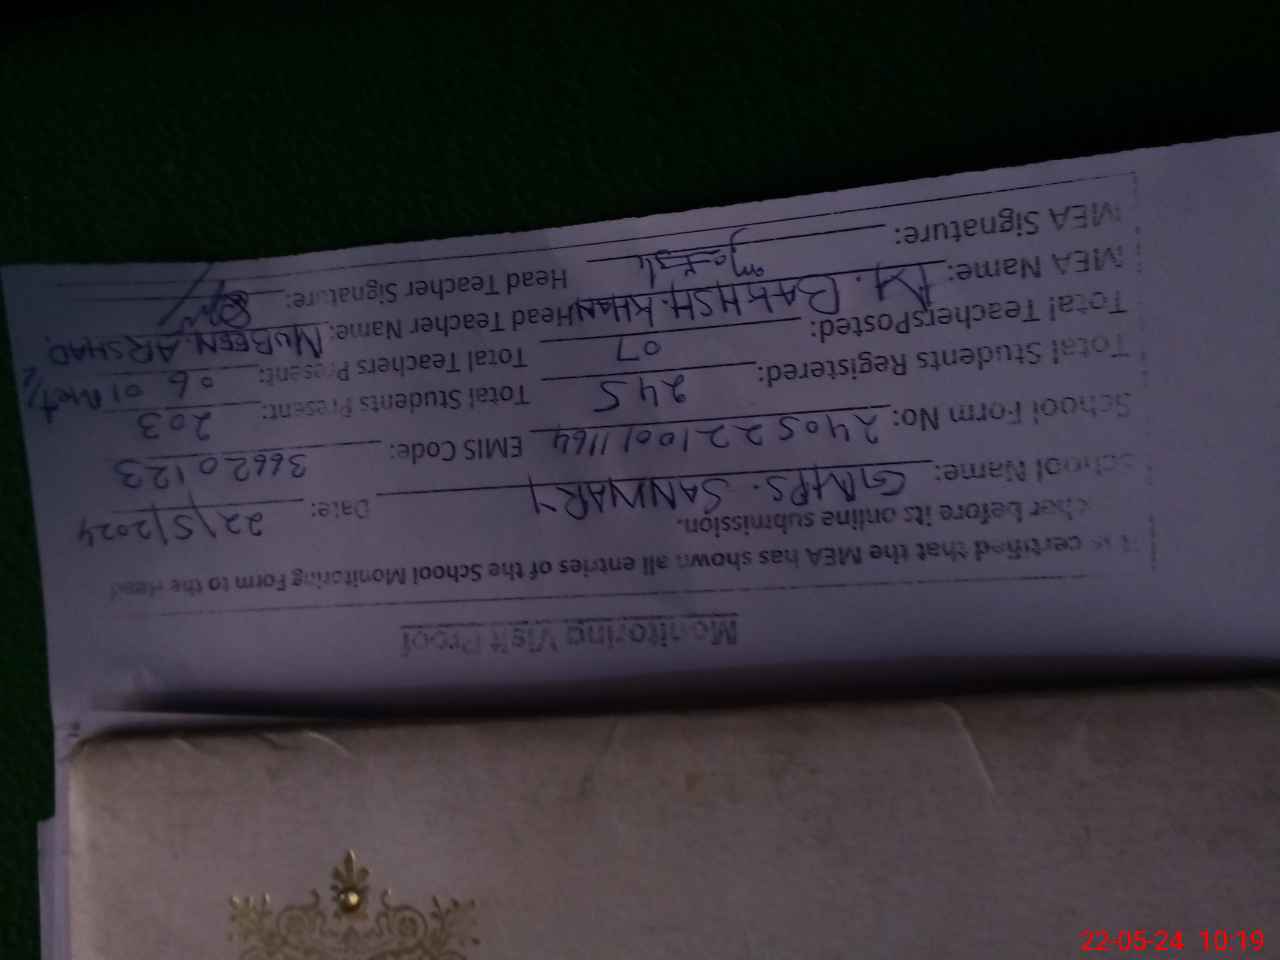 Monitoring Visit Proof
certified that the MEA has shown all entries of the School Monitoring Form to the Head
before its online submission.
School Name: GMPS. SANWARY Date: 22/5/2024
School Form No: 2405221001164 EMIS Code: 36620123
Total Students Registered: 245 Total Students Present: 203
Total TeachersPosted: 07 Total Teachers Present: 06 01
MEA Name: M. BAKHSH. KHAN Head Teacher Name: MUBEEN. ARSHAD
MEA Signature: Head Teacher Signature:
22-05-24 10:19